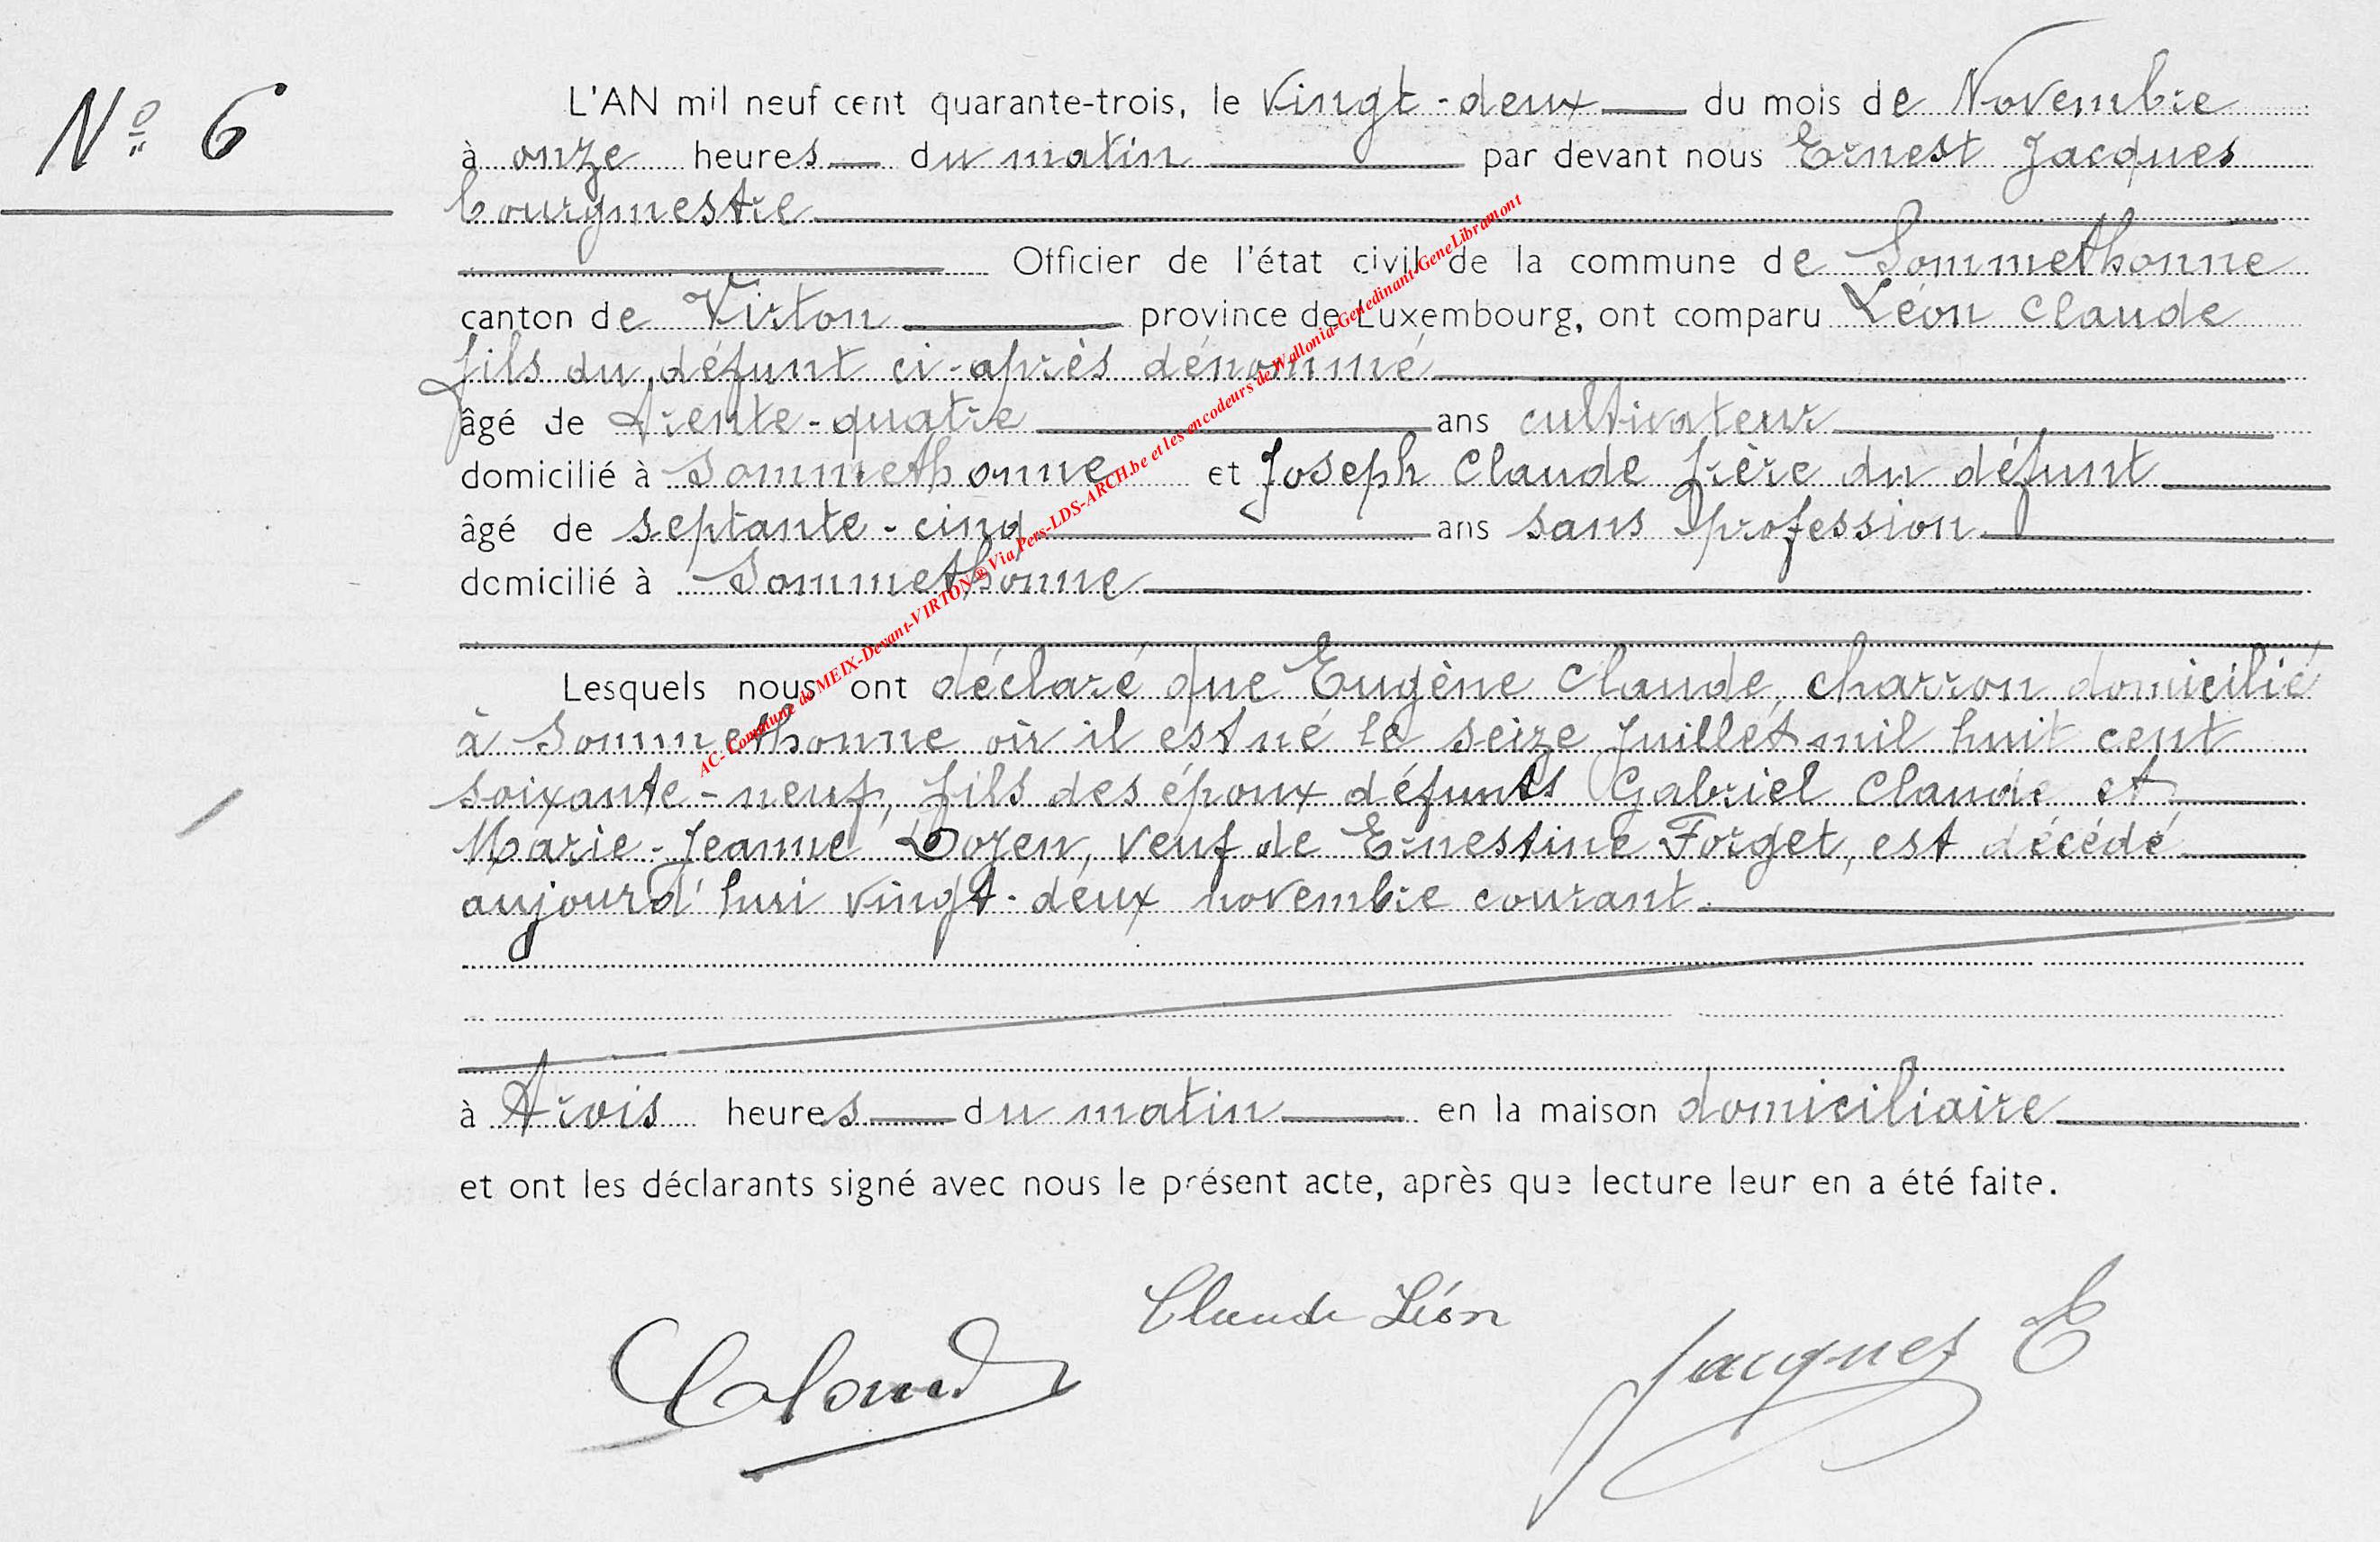 Nº 6
L'AN mil neuf cent quarante-trois, le vingt-deux du mois de Novembre
à onze heures du matin par devant nous Ernest Jacques
bourgmestre
Officier de l'état civil de la commune de Sommethonne
canton de Virton province de Luxembourg, ont comparu Léon Claude
fils du défunt ci-après dénommé
âgé de trente-quatre ans cultivateur
domicilié à Sommethonne et Joseph Claude frère du défunt
âgé de septante-cinq ans sans profession
domicilié à Sommethonne
Lesquels nous ont déclaré que Eugène Claude, charron domicilié
à Sommethonne où il est né le seize Juillet mil huit cent
soixante-neuf, fils des époux défunts Gabriel Claude et
Marie-Jeanne Dozen, veuf de Ernestine Forget, est décédé
aujourd'hui vingt-deux novembre courant.
à trois heures du matin en la maison domiciliaire
et ont les déclarants signé avec nous le présent acte, après que lecture leur en a été faite.
Claude Léon
Claude
Jacques E
AC- Commune de MEIX-Devant-VIRTON ® Via Pers-LDS-ARCH.be et les encodeurs de Wallonia-Genedinant-GeneLibramont